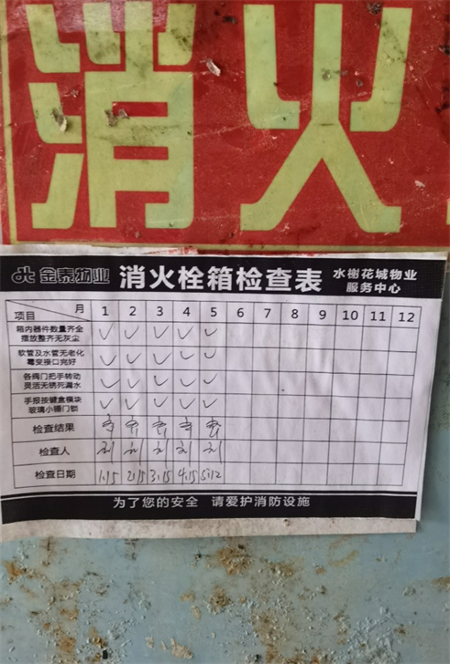 消火
金泰物业 消火栓箱检查表 水榭花城物业
服务中心
项目 月 1 2 3 4 5 6 7 8 9 10 11 12
箱内器件数量齐全
摆放整齐无灰尘 ✓ ✓ ✓ ✓ ✓
软管及水管无老化
霉变接口完好 ✓ ✓ ✓ ✓ ✓
各阀门把手转动
灵活无锈死漏水 ✓ ✓ ✓ ✓ ✓
手报按键盒模块
玻璃小锤门锁 ✓ ✓ ✓ ✓ ✓
检查结果
检查人
检查日期 1.15 2.15 3.15 4.15 5.12
为了您的安全 请爱护消防设施